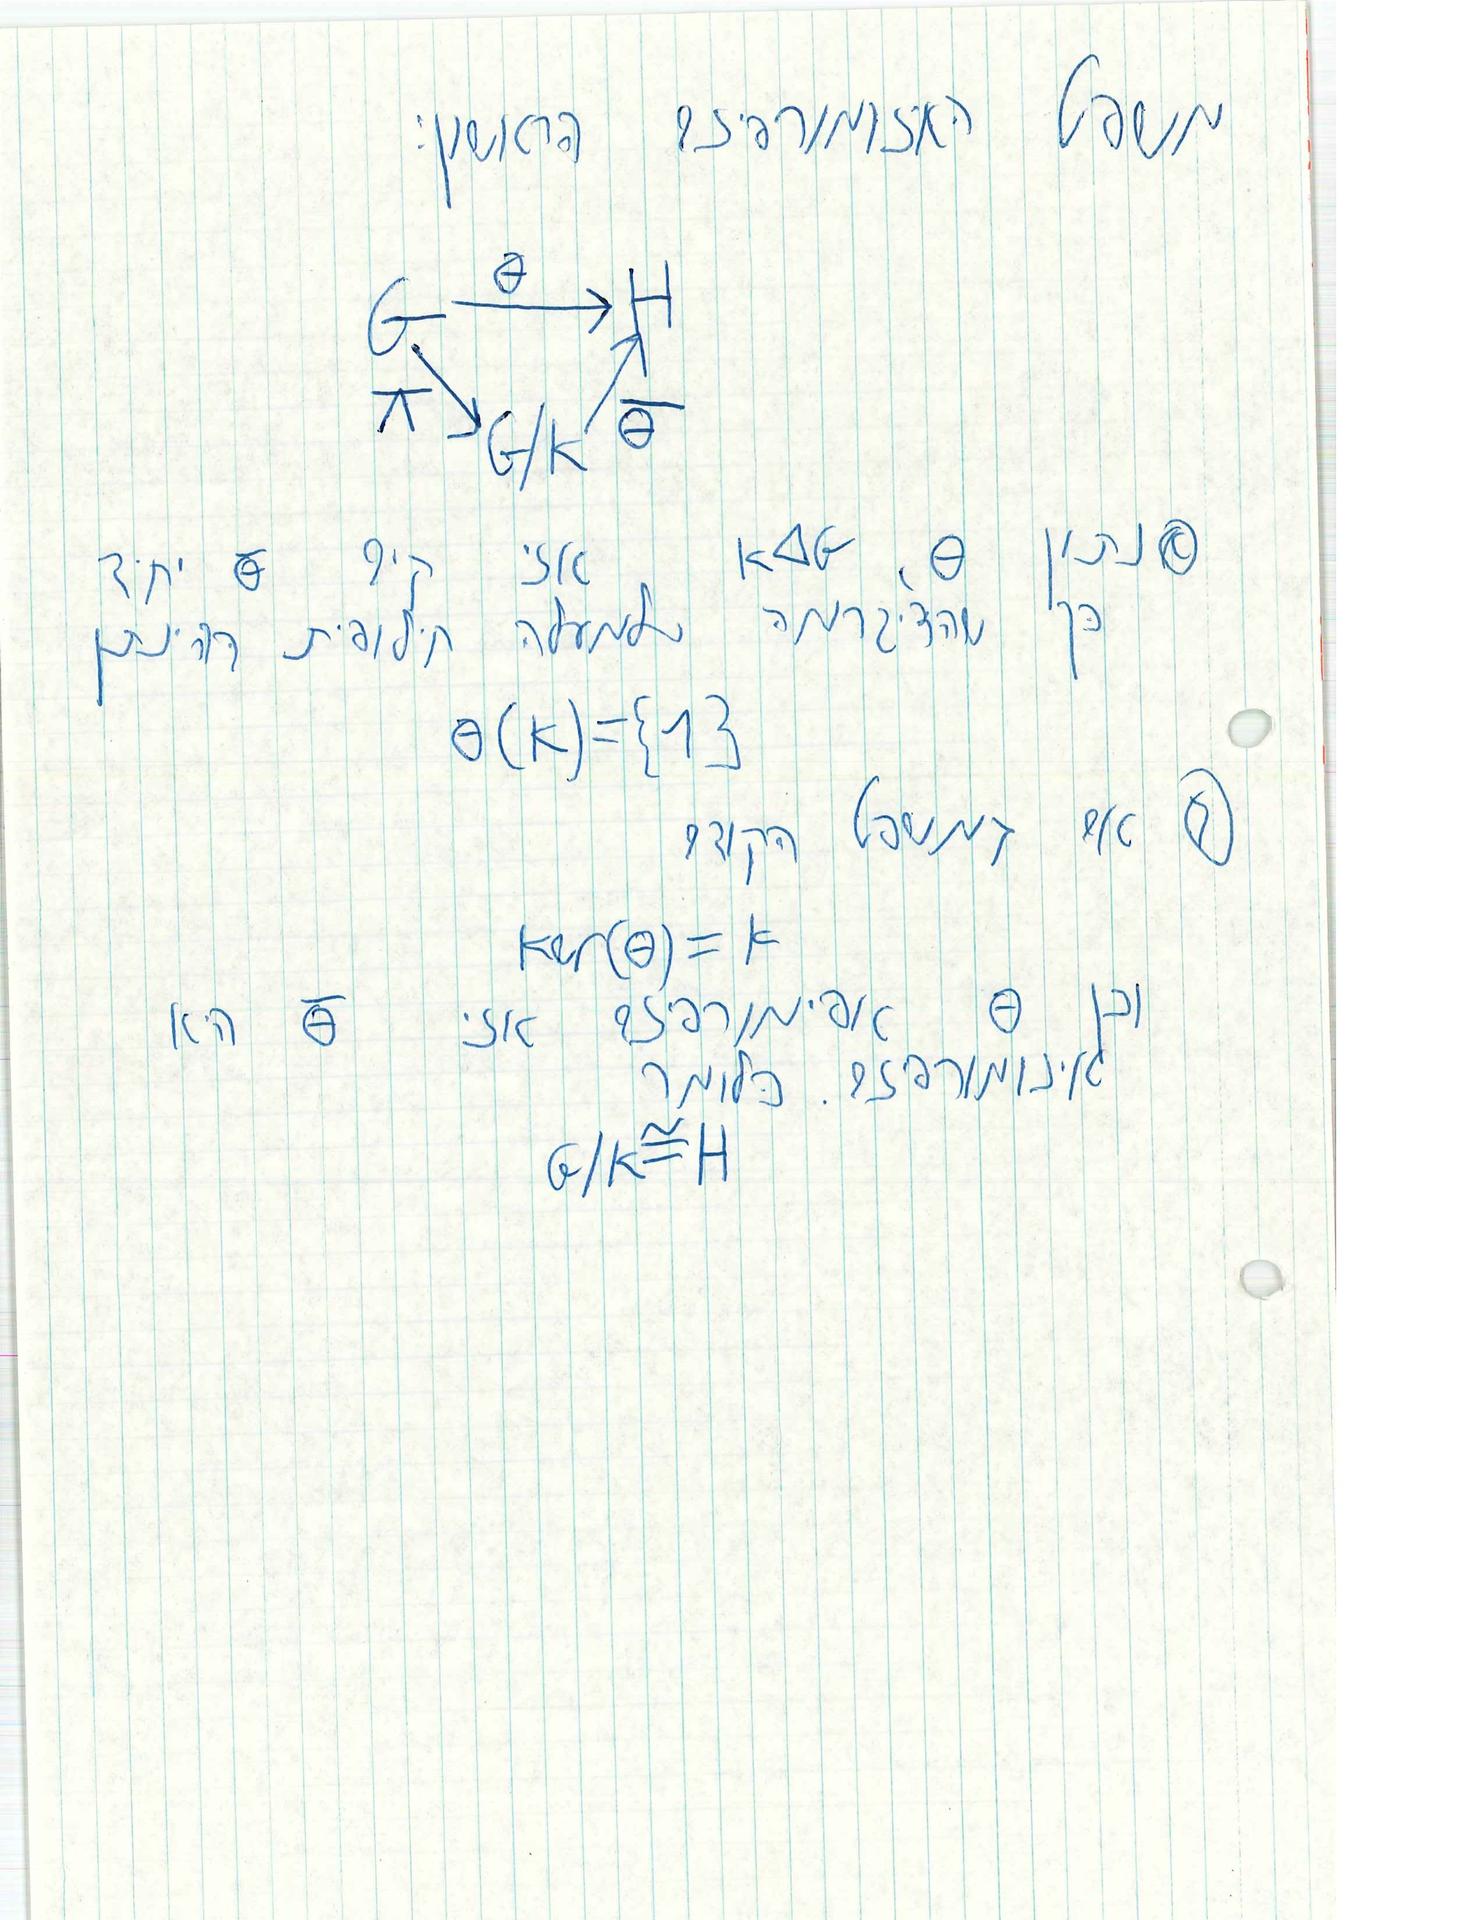 משפט האיזומורפיזם הראשון:
θ
G → H
π G/K θ̄
א נתון θ, K△G אזי קיים θ̄ יחיד
כך שהדיגרמה למעלה חילופית בהינתן
θ(K)={1}
ב אם במשפט הקודם
ker(θ)=K
וכן θ אפימורפיזם אזי θ̄ היא
איזומורפיזם. כלומר
G/K≅H